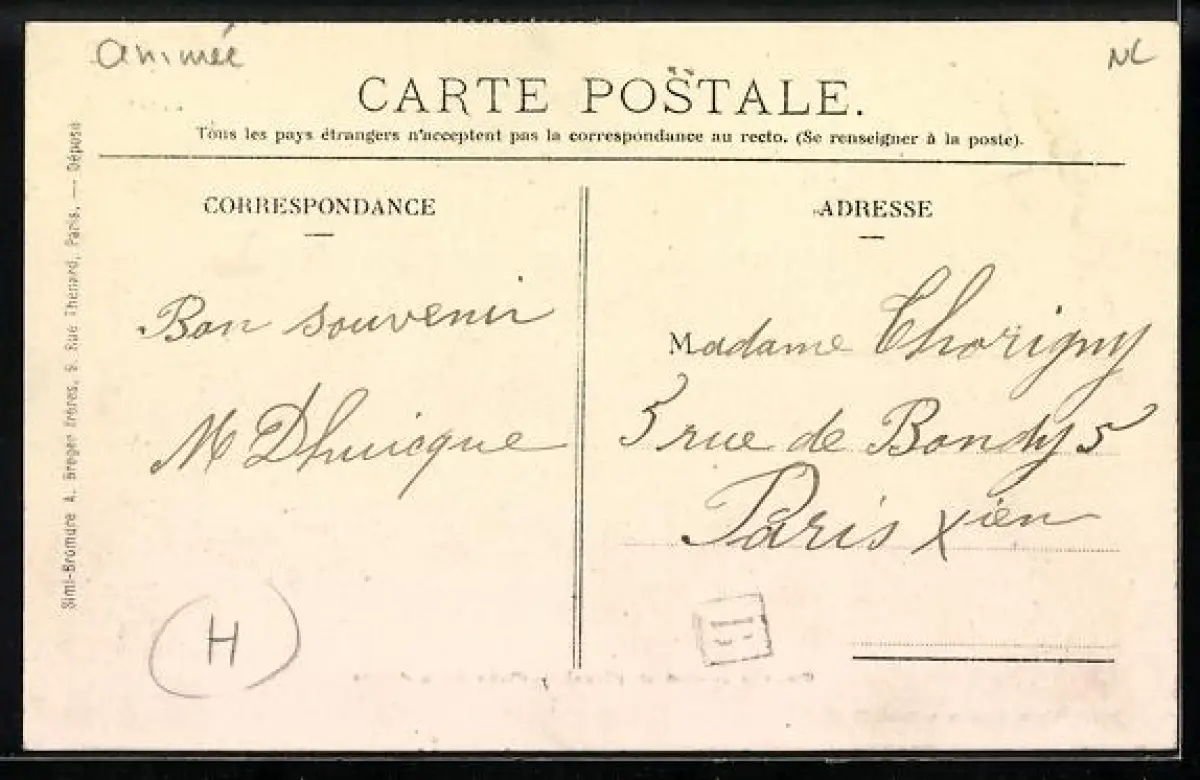 animée
NC
CARTE POSTALE.
Tous les pays étrangers n'acceptent pas la correspondance au recto. (Se renseigner à la poste).
Simi-Bromure A. Breger Frères, 9. Rue Thénard, Paris. — Déposé
CORRESPONDANCE
Bon souvenir
M Dhuicque
H
ADRESSE
Madame Thorigny
5 rue de Bondy 5
Paris Xièm
E